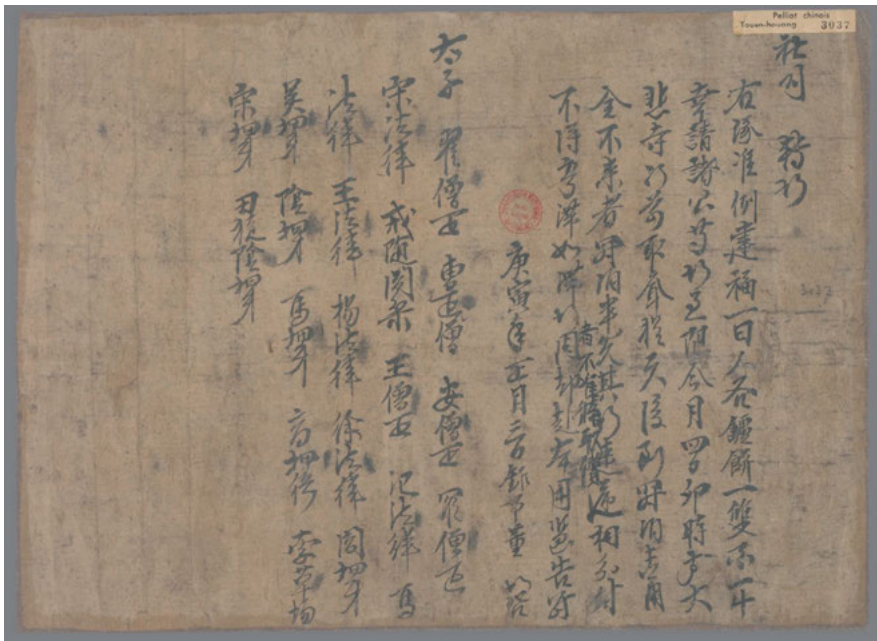 Pelliot chinois
Touen-houang 3037
社司 轉帖
右緣准例建福一日人各爐餅一雙粟一斗
幸請諸公等帖至限今月四日卯時於大
悲寺門前取齊捉二人後到罰酒壹角
全不來者罰酒半瓮其帖速遞相分付
不得停滯如滯帖
者准條
帖周却赴本司用憑告罰
庚寅年正月三日錄事董 帖咨
太子 翟僧正 僧 安僧正 羅僧正
宋法律 戒隨闍梨 王僧正 氾法律 馬
法律 王法律 楊法律 徐法律 閻押牙
吳押牙 陰押牙 馬押牙 高押衙 索草場
宋押牙 田 陰押牙
3037